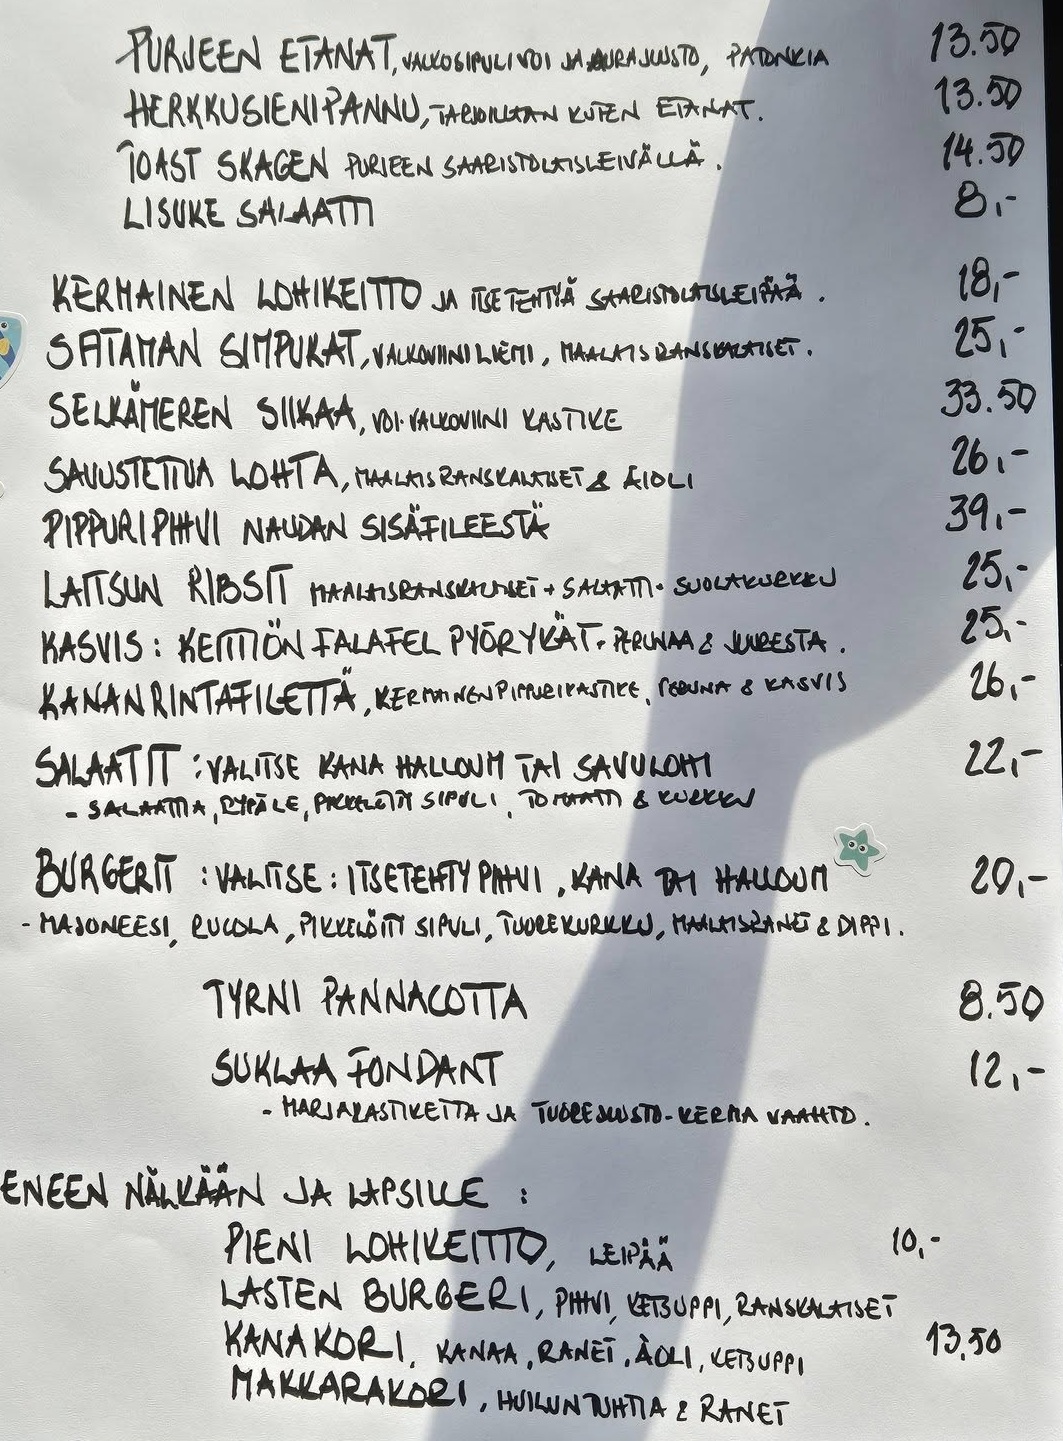 PURJEEN ETANAT, VALKOSIPULIVOI JA AURAJUUSTO, PATONKIA 13.50
HERKKUSIENIPANNU, TARJOILLAAN KUTEN ETANAT. 13.50
TOAST SKAGEN PURJEEN SAARISTOLAISLEIVÄLLÄ. 14.50
LISUKE SALAATTI 8,-
KERMAINEN LOHIKEITTO JA ITSETEHTYÄ SAARISTOLAISLEIPÄÄ. 18,-
SATAMAN SIMPUKAT, VALKOVIINILIEMI, MAALAISRANSKALAISET. 25,-
SELKÄMEREN SIIKAA, VOI-VALKOVIINI KASTIKE 33.50
SAVUSTETTUA LOHTA, MAALAISRANSKALAISET & ÄIOLI 26,-
PIPPURIPIHVI NAUDAN SISÄFILEESTÄ 39,-
LAITSUN RIBSIT MAALAISRANSKALAISET + SALAATTI + SUOLAKURKKU 25,-
KASVIS: KEITTIÖN FALAFEL PYÖRYKÄT, PERUNAA & JUURESTA. 25,-
KANANRINTAFILETTÄ, KERMAINEN PIPPURIKASTIKE, PERUNA & KASVIS 26,-
SALAATIT: VALITSE KANA HALLOUMI TAI SAVULOHI 22,-
- SALAATTIA, RYPÄLE, PIKKELÖITY SIPULI, TOMAATTI & KURKKU
BURGERIT: VALITSE: ITSETEHTY PIHVI, KANA TAI HALLOUMI 20,-
- MAJONEESI, RUCOLA, PIKKELÖITY SIPULI, TUOREKURKKU, MAALAISRANET & DIPPI.
TYRNI PANNACOTTA 8.50
SUKLAA FONDANT 12,-
- MARJAKASTIKETTA JA TUOREJUUSTO-KERMA VAAHTO.
ENEEN NÄLKÄÄN JA LAPSILLE:
PIENI LOHIKEITTO, LEIPÄÄ 10,-
LASTEN BURGERI, PIHVI, KETSUPPI, RANSKALAISET
KANAKORI, KANAA, RANET, ÄOLI, KETSUPPI 13,50
MAKKARAKORI, HUILUNTUHTIA & RANET